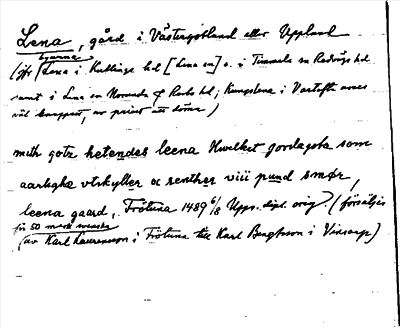 Lena, gård i Västergötland eller Uppland
(jfr gårdarna Lena i Kullings hd [Lena sn] o. i Timmele sn Redvägs hd
samt i Lena sn Norunda o Rasbo hd; Kungslena i Vartofta avses
väl knappast, av priset att döma)
mith gotz hetendes leena hwilket jordagotz som
aarligha vtskyller oc renther viii pund smør,
leena gaard, Frötuna 1489 6/8 Upps. dipl. orig. (försäljes
för 50 mark svenska
av Karl Laurensson i Frötuna till Karl Bengtsson i Vinstorp)